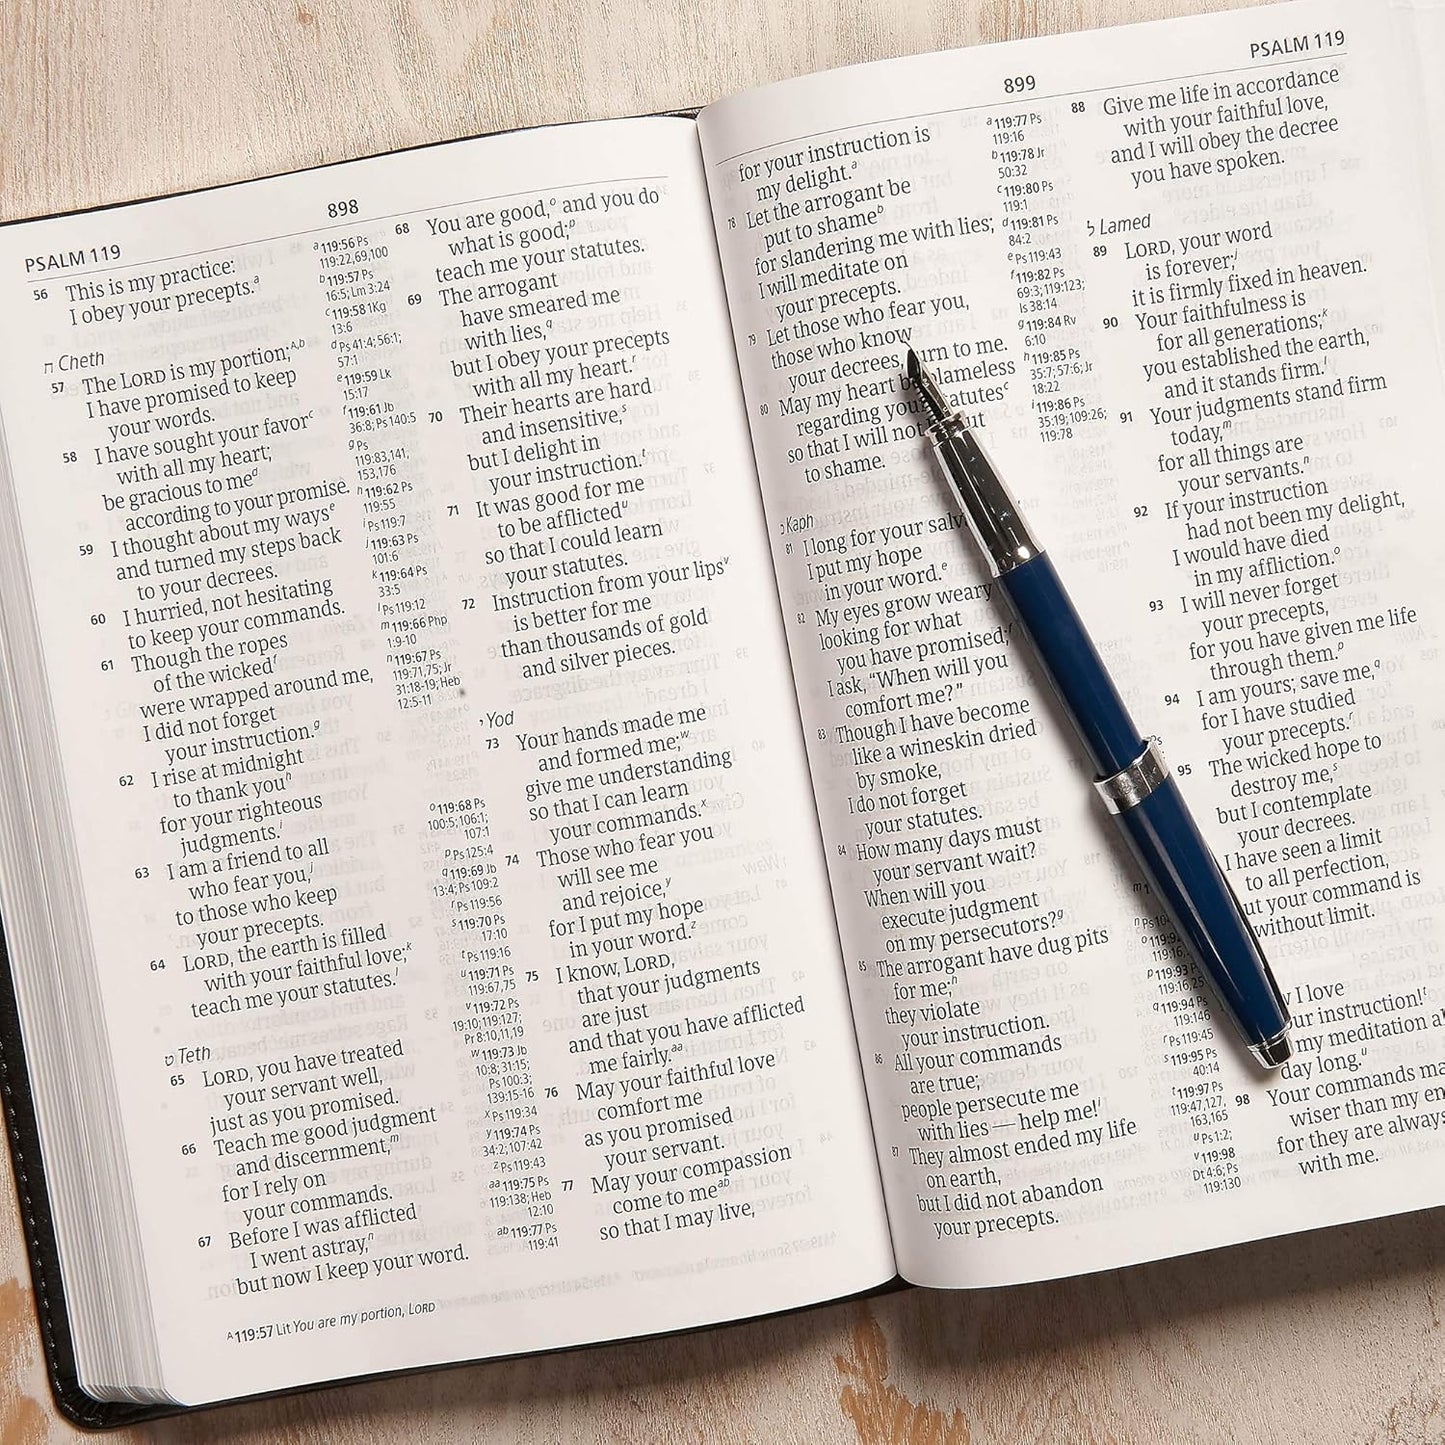 PSALM 119
898
56 This is my practice:
I obey your precepts.ᵃ
ח Cheth
57 The LORD is my portion;ᴬ,ᵇ
I have promised to keep
your words.
58 I have sought your favorᶜ
with all my heart;
be gracious to meᵈ
according to your promise.
59 I thought about my waysᵉ
and turned my steps back
to your decrees.
60 I hurried, not hesitating
to keep your commands.
61 Though the ropes
of the wickedᶠ
were wrapped around me,
I did not forget
your instruction.ᵍ
62 I rise at midnight
to thank youʰ
for your righteous
judgments.ⁱ
63 I am a friend to all
who fear you,ʲ
to those who keep
your precepts.
64 LORD, the earth is filled
with your faithful love;ᵏ
teach me your statutes.ˡ
ט Teth
65 LORD, you have treated
your servant well,
just as you promised.
66 Teach me good judgment
and discernment,ᵐ
for I rely on
your commands.
67 Before I was afflicted
I went astray,ⁿ
but now I keep your word.
ᵃ119:56 Ps
119:22,69,100
ᵇ119:57 Ps
16:5; Lm 3:24
ᶜ119:58 1Kg
13:6
ᵈPs 41:4; 56:1;
57:1
ᵉ119:59 Lk
15:17
ᶠ119:61 Jb
36:8; Ps 140:5
ᵍPs
119:83,141,
153,176
ʰ119:62 Ps
119:55
ⁱPs 119:7
ʲ119:63 Ps
101:6
ᵏ119:64 Ps
33:5
ˡPs 119:12
ᵐ119:66 Php
1:9-10
ⁿ119:67 Ps
119:71,75; Jr
31:18-19; Heb
12:5-11
ᵒ119:68 Ps
100:5; 106:1;
107:1
ᵖPs 125:4
q119:69 Jb
13:4; Ps 109:2
ʳPs 119:56
ˢ119:70 Ps
17:10
ᵗPs 119:16
ᵘ119:71 Ps
119:67,75
ᵛ119:72 Ps
19:10; 119:127;
Pr 8:10,11,19
ʷ119:73 Jb
10:8; 31:15;
Ps 100:3;
139:15-16
ˣPs 119:34
ʸ119:74 Ps
34:2; 107:42
ᶻPs 119:43
ᵃᵃ119:75 Ps
119:138; Heb
12:10
ᵃᵇ119:77 Ps
119:41
68 You are good,ᵒ and you do
what is good;ᵖ
teach me your statutes.
69 The arrogant
have smeared me
with lies,q
but I obey your precepts
with all my heart.ʳ
70 Their hearts are hard
and insensitive,ˢ
but I delight in
your instruction.ᵗ
71 It was good for me
to be afflictedᵘ
so that I could learn
your statutes.
72 Instruction from your lipsᵛ
is better for me
than thousands of gold
and silver pieces.
י Yod
73 Your hands made me
and formed me;ʷ
give me understanding
so that I can learn
your commands.ˣ
74 Those who fear you
will see me
and rejoice,ʸ
for I put my hope
in your word.ᶻ
75 I know, LORD,
that your judgments
are just
and that you have afflicted
me fairly.ᵃᵃ
76 May your faithful love
comfort me
as you promised
your servant.
77 May your compassion
come to meᵃᵇ
so that I may live,
ᴬ119:57 Lit You are my portion, LORD
899
PSALM 119
for your instruction is
my delight.ᵃ
78 Let the arrogant be
put to shameᵇ
for slandering me with lies;
I will meditate on
your precepts.
79 Let those who fear you,
those who know
your decrees, turn to me.
80 May my heart be blameless
regarding your statutesᶜ
so that I will not be put
to shame.
כ Kaph
81 I long for your
I put my hope
in your word.ᵉ
82 My eyes grow weary
looking for what
you have promised;ᶠ
I ask, “When will you
comfort me?”
83 Though I have become
like a wineskin dried
by smoke,
I do not forget
your statutes.
84 How many days must
your servant wait?
When will you
execute judgment
on my persecutors?ᵍ
85 The arrogant have dug pits
for me;ʰ
they violate
your instruction.
86 All your commands
are true;
people persecute me
with lies — help me!ⁱ
87 They almost ended my life
on earth,
but I did not abandon
your precepts.
ᵃ119:77 Ps
119:16
ᵇ119:78 Jr
50:32
ᶜ119:80 Ps
119:1
ᵈ119:81 Ps
84:2
ᵉPs 119:43
ᶠ119:82 Ps
69:3; 119:123;
Is 38:14
ᵍ119:84 Rv
6:10
ʰ119:85 Ps
35:7; 57:6; Jr
18:22
ⁱ119:86 Ps
35:19; 109:26;
119:78
119:16
ᵖ119:93 Ps
119:16,25
q119:94 Ps
119:146
ʳPs 119:45
ˢ119:95 Ps
40:14
ᵗ119:97 Ps
119:47,127,
163,165
ᵘPs 1:2;
ᵛ119:98
Dt 4:6; Ps
119:130
88 Give me life in accordance
with your faithful love,
and I will obey the decree
you have spoken.
ל Lamed
89 LORD, your word
is forever;ʲ
it is firmly fixed in heaven.
90 Your faithfulness is
for all generations;ᵏ
you established the earth,
and it stands firm.ˡ
91 Your judgments stand firm
today,ᵐ
for all things are
your servants.ⁿ
92 If your instruction
had not been my delight,
I would have died
in my affliction.ᵒ
93 I will never forget
your precepts,
for you have given me life
through them.ᵖ
94 I am yours; save me,q
for I have studied
your precepts.ʳ
95 The wicked hope to
destroy me,ˢ
but I contemplate
your decrees.
I have seen a limit
to all perfection,
but your command is
without limit.
I love
your instruction!ᵗ
my meditation
day long.ᵘ
98 Your commands
wiser than my
for they are always
with me.